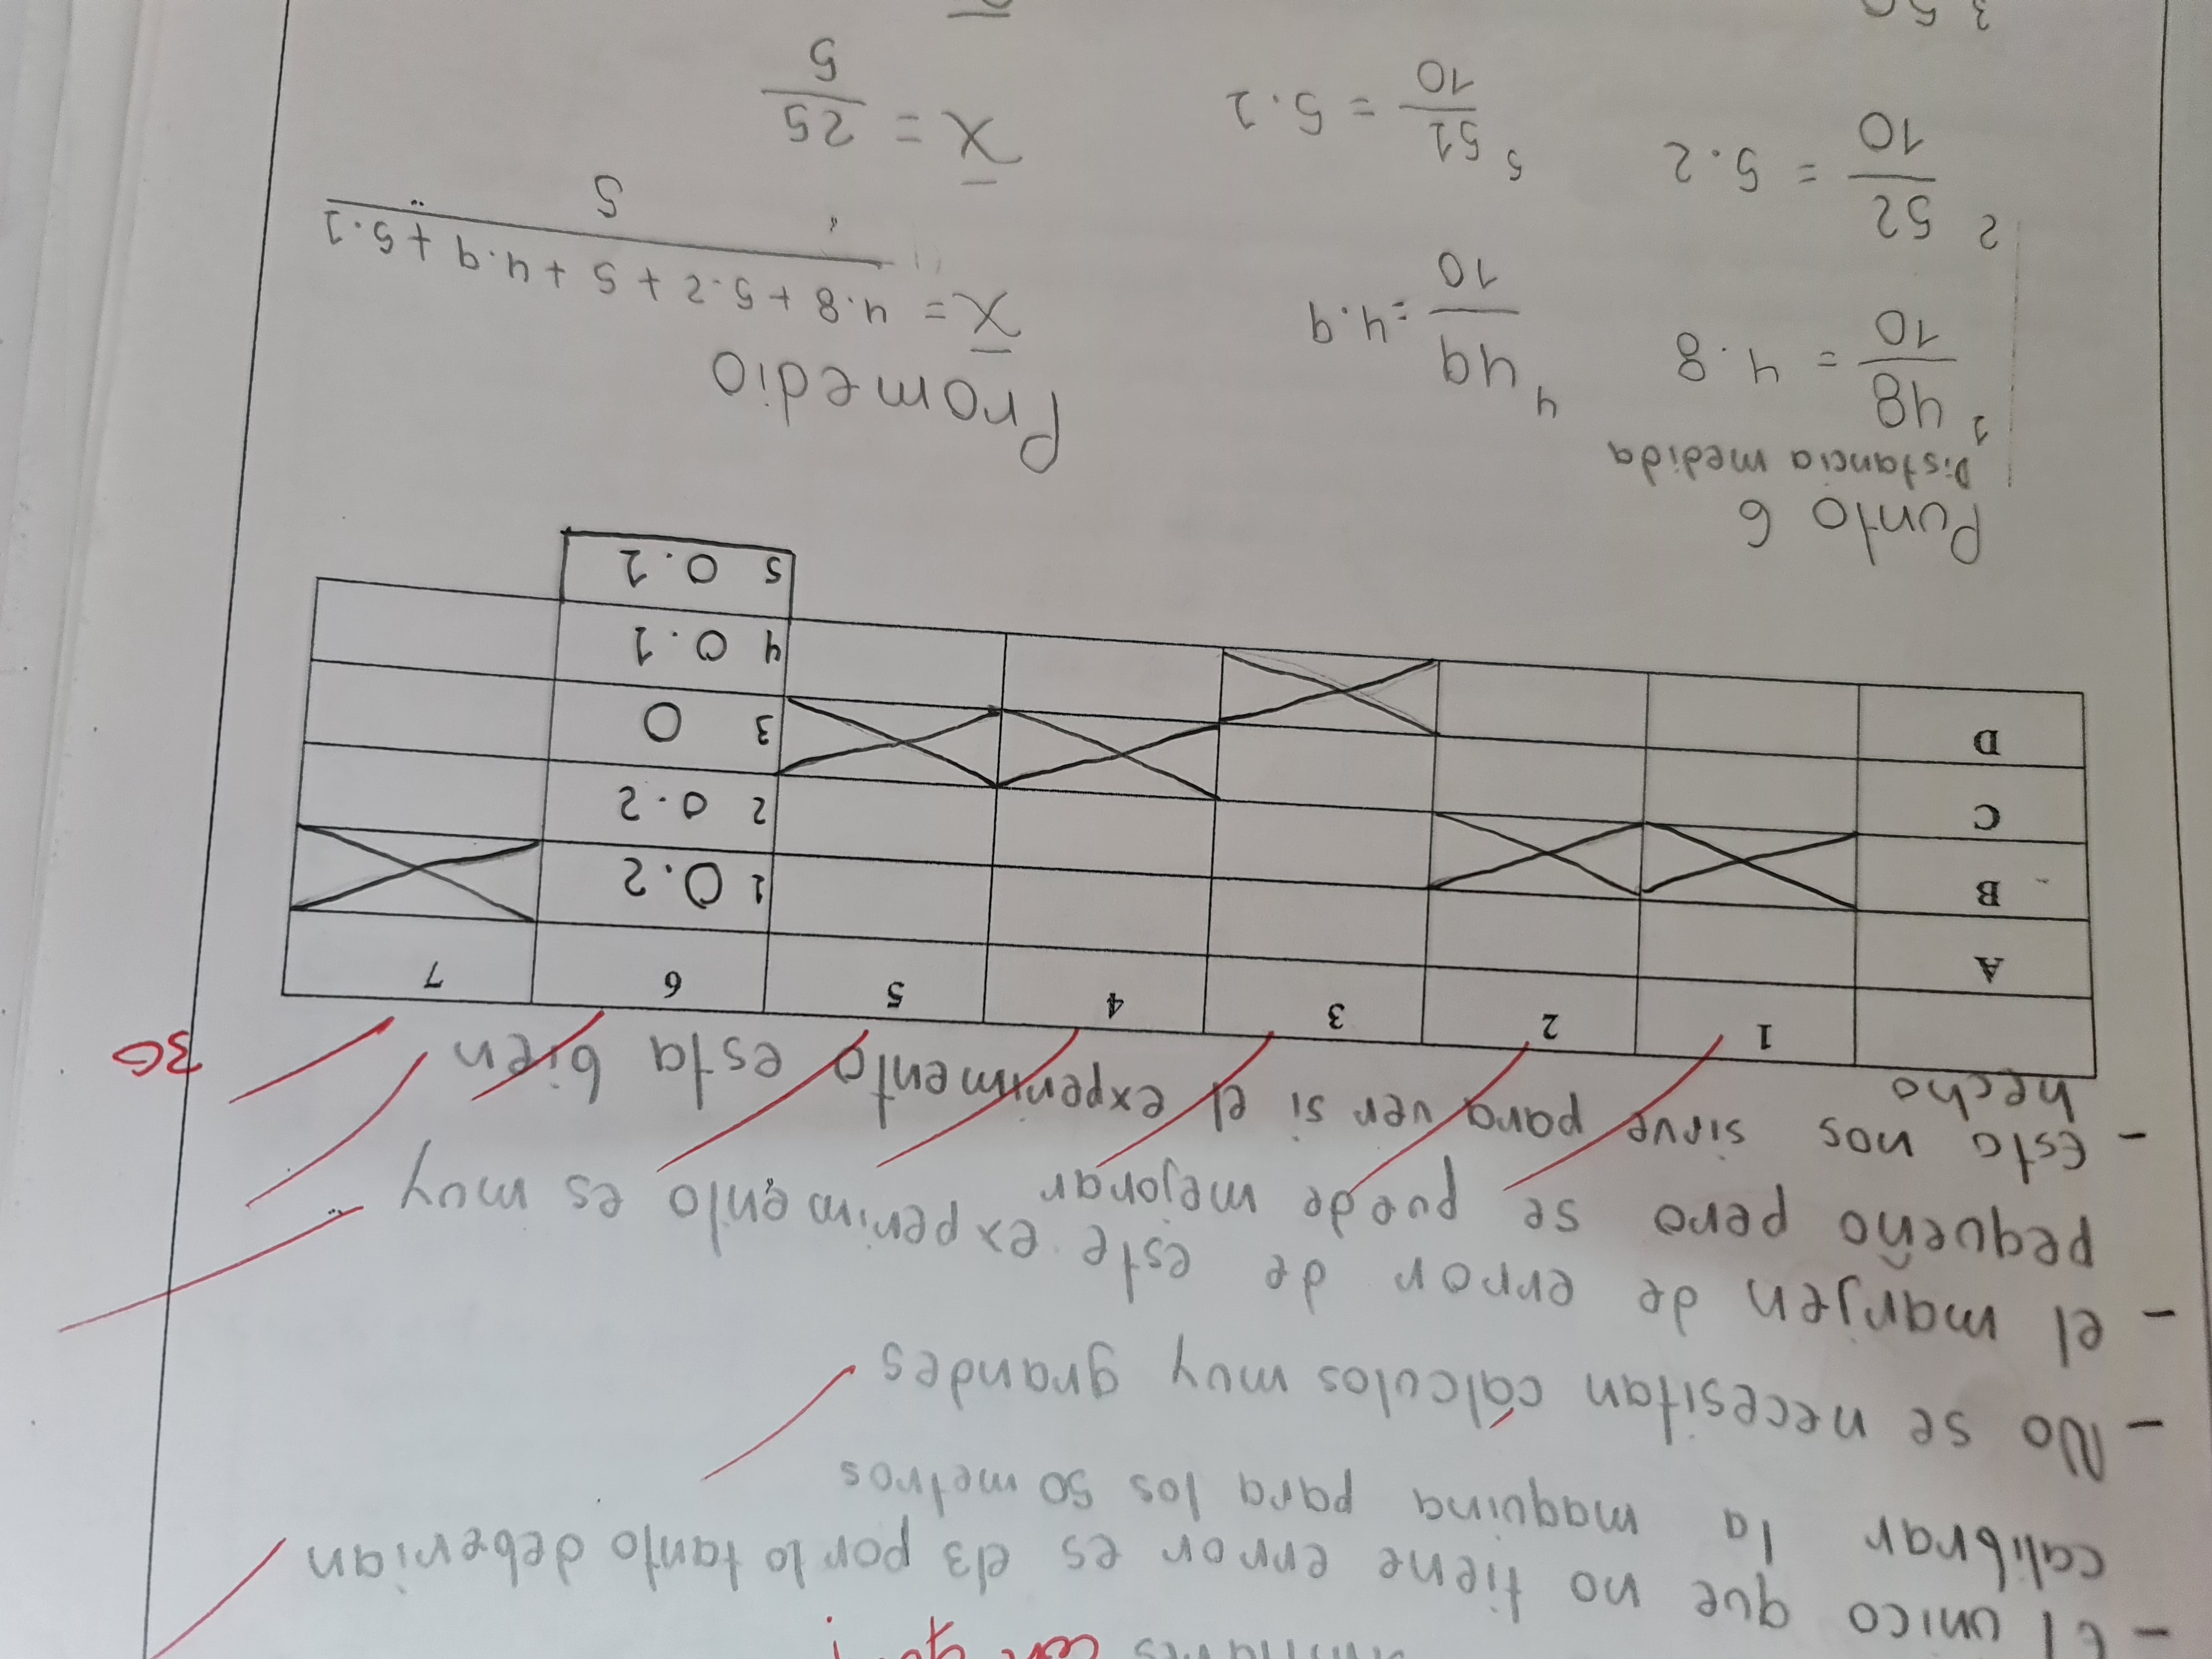 - El único que no tiene error es el 3 por lo tanto deberian
calibrar la maquina para los 50 metros
- No se necesitan cálculos muy grandes
- el marjen de error de este experimento es muy
pequeño pero se puede mejorar
- Esto nos sirve para ver si el experimento esta bien
hecho
30
1 2 3 4 5 6 7
A 1 0.2
B 2 0.2
C 3 0
D 4 0.1
5 0.1
Punto 6
Distancia medida
1 48/10 = 4.8
4 49/10 = 4.9
2 52/10 = 5.2
5 51/10 = 5.1
3
Promedio
x̄ = 4.8 + 5.2 + 5 + 4.9 + 5.1 / 5
x̄ = 25/5